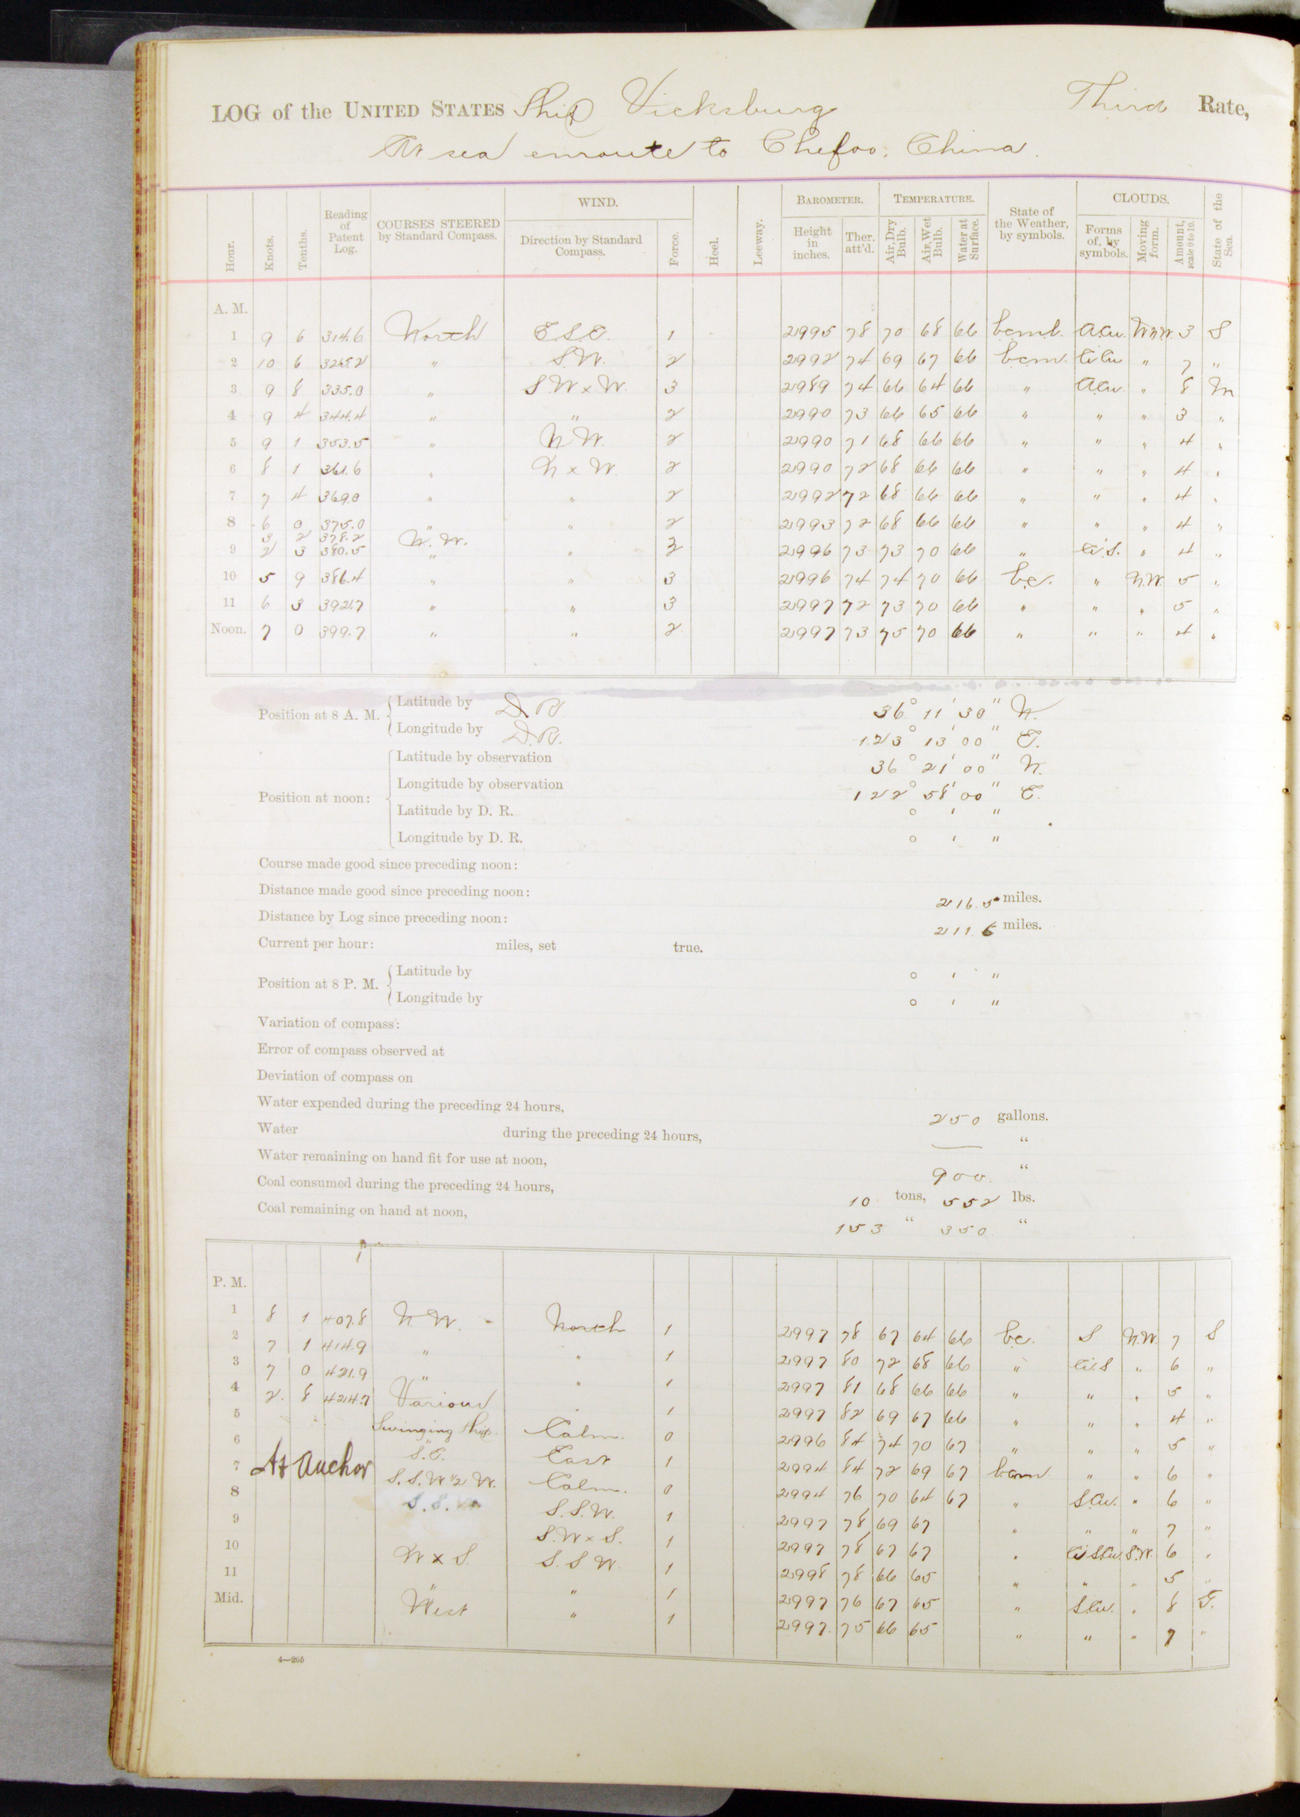 LOG of the UNITED STATES Ship Vicksburg Third Rate,
At sea enroute to Chefoo, China.
Hour. Knots. Tenths. Reading of Patent Log. COURSES STEERED by Standard Compass. WIND. Direction by Standard Compass. Force. Heel. Leeway. BAROMETER. Height in inches. Ther. att'd. TEMPERATURE. Air, Dry Bulb. Air, Wet Bulb. Water at Surface. State of the Weather, by symbols. CLOUDS. Forms of, by symbols. Moving form. Amount, scale 0 to 10. State of the Sea.
A. M.
1 9 6 314.6 North E.S.E. 1 2995 78 70 68 66 A.Cu. WNW 3 S
2 10 6 325.2 " S.W. 2 2992 74 69 67 66 bcm. Ci.Cu " 7 "
3 9 8 335.0 " S W x W. 3 2989 74 66 64 66 " A.Cu. " 8 M
4 9 4 344.4 " " 2 2990 73 66 65 66 " " " 3 "
5 9 1 353.5 " N.W. 2 2990 71 68 66 66 " " " 4 "
6 8 1 361.6 " N x W. 2 2990 72 68 66 66 " " " 4 "
7 7 4 369.0 " " 2 2992 72 68 66 66 " " " 4 "
8 6 0 375.0 " " 2 2993 72 68 66 66 " " " 4 "
3 2 378.2 N.W.
9 2 3 380.5 " " 2996 73 73 70 66 " Ci.S. " 4 "
10 5 9 386.4 " " 3 2996 74 74 70 66 bc. " N.W. 5 "
11 6 3 392.7 " " 3 2997 72 73 70 66 " " " 5 "
Noon. 7 0 399.7 " " 2 2997 73 75 70 66 " " " 4 "
Position at 8 A. M. Latitude by D.R. 36° 11' 30" N.
Longitude by D.R. 123° 13' 00" E.
Position at noon: Latitude by observation 36° 21' 00" N.
Longitude by observation 122° 58' 00" E.
Latitude by D. R. ° ' "
Longitude by D. R. ° ' "
Course made good since preceding noon:
Distance made good since preceding noon: 216.5 miles.
Distance by Log since preceding noon: 211.6 miles.
Current per hour: miles, set true.
Position at 8 P. M. Latitude by ° ' "
Longitude by ° ' "
Variation of compass:
Error of compass observed at
Deviation of compass on
Water expended during the preceding 24 hours, 250 gallons.
Water during the preceding 24 hours, — "
Water remaining on hand fit for use at noon, 900. "
Coal consumed during the preceding 24 hours, 10 tons, 552 lbs.
Coal remaining on hand at noon, 153 " 350 "
P. M.
1 8 1 407.8 N W. North 1 2997 78 67 64 66 bc. S N.W. 7 S
2 7 1 414.9 " " 1 2997 80 72 68 66 " Ci.S " 6 "
3 7 0 421.9 " " 1 2997 81 68 66 66 " " " 5 "
4 2 8 424.7 Various " 1 2997 82 69 67 66 " " " 4 "
5 Swinging Ship. Calm. 0 2996 84 74 70 67 " " " 5 "
6 S.E. East 1 2994 84 72 69 67 bcm " " 6 "
7 At Anchor S.S.W ½ W. Calm. 0 2994 76 70 64 67 " S.Cu. " 6 "
8 S.S.W. 1 2997 78 69 67 " " " 7 "
9 S.W x S. 1 2997 78 67 67 " Ci.S.Cu. S.W. 6 "
10 W x S S.S.W. 1 2998 78 66 65 " " " 5 "
11 " " 1 2997 76 67 65 " S.Cu. " 8 S.
Mid. West " 1 2997 75 66 65 " " " 7 "
4—255